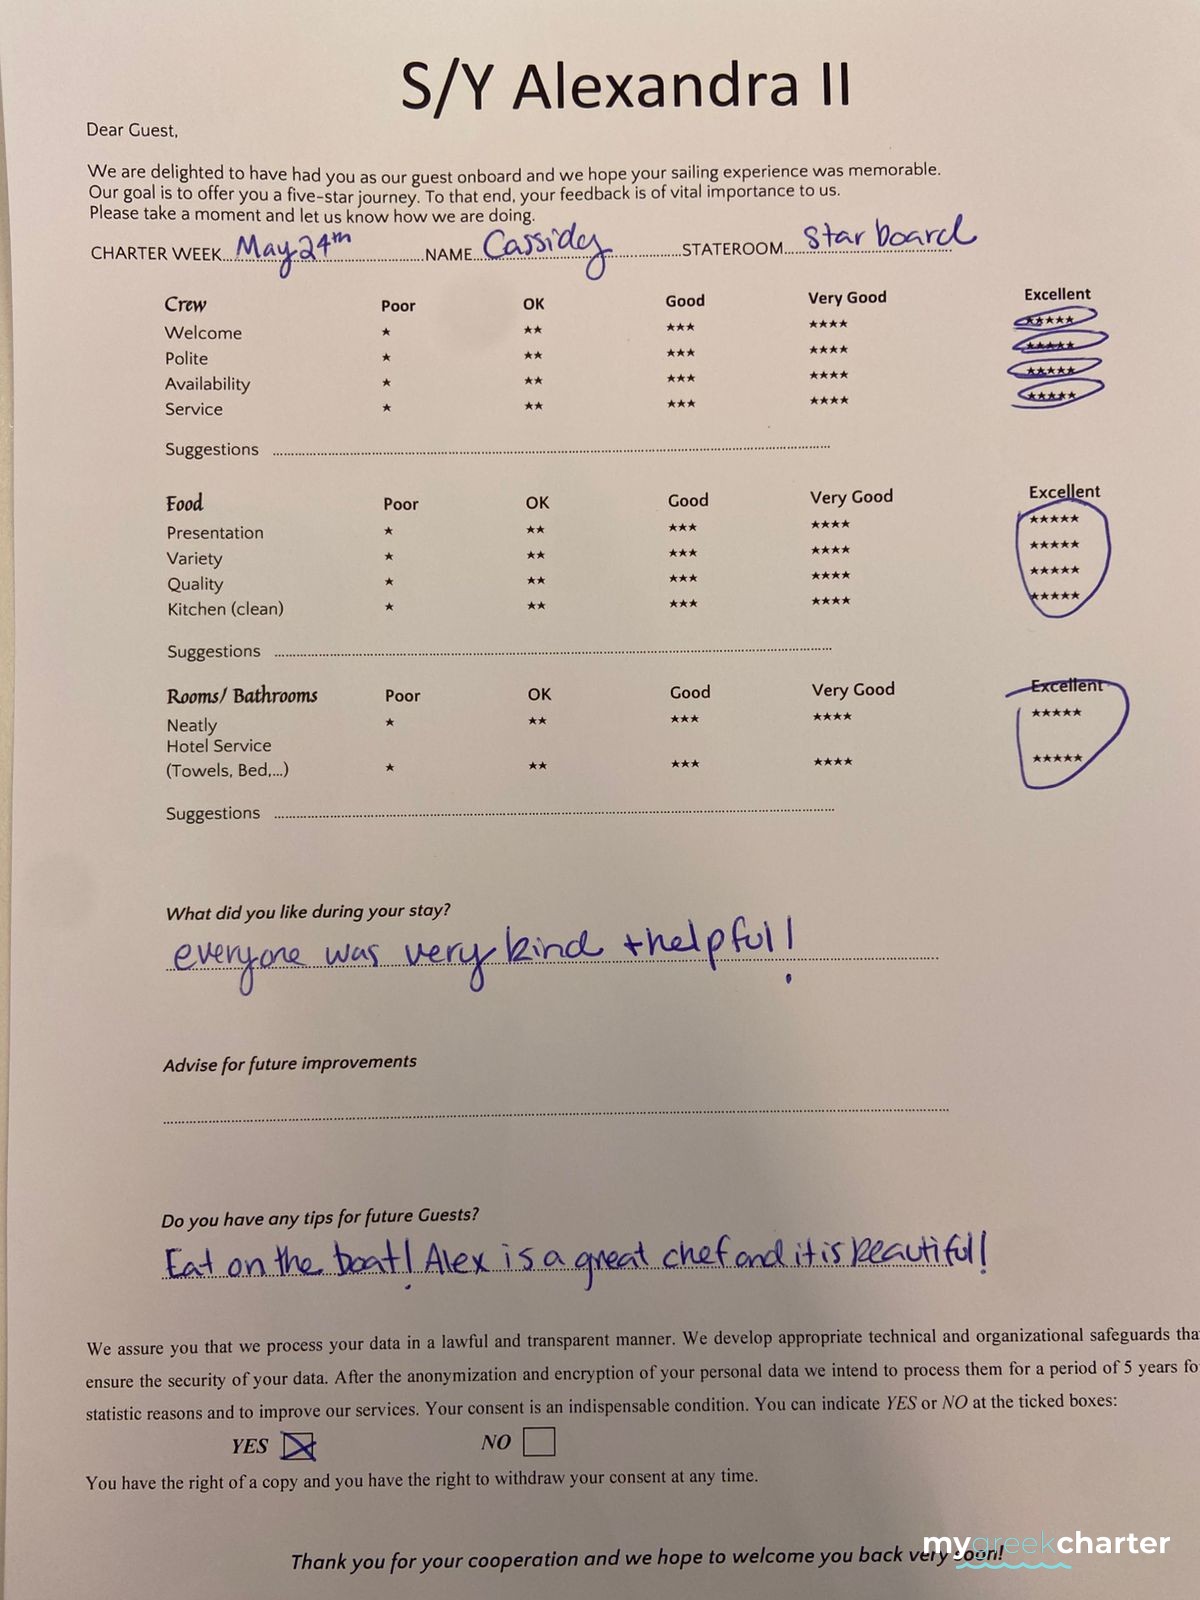 S/Y Alexandra II
Dear Guest,
We are delighted to have had you as our guest onboard and we hope your sailing experience was memorable.
Our goal is to offer you a five-star journey. To that end, your feedback is of vital importance to us.
Please take a moment and let us know how we are doing.
CHARTER WEEK May 24th NAME Cassidy STATEROOM starboard
Crew Poor OK Good Very Good Excellent
Welcome ★ ★★ ★★★ ★★★★ ★★★★★
Polite ★ ★★ ★★★ ★★★★ ★★★★★
Availability ★ ★★ ★★★ ★★★★ ★★★★★
Service ★ ★★ ★★★ ★★★★ ★★★★★
Suggestions
Food Poor OK Good Very Good Excellent
Presentation ★ ★★ ★★★ ★★★★ ★★★★★
Variety ★ ★★ ★★★ ★★★★ ★★★★★
Quality ★ ★★ ★★★ ★★★★ ★★★★★
Kitchen (clean) ★ ★★ ★★★ ★★★★ ★★★★★
Suggestions
Rooms/ Bathrooms Poor OK Good Very Good Excellent
Neatly ★ ★★ ★★★ ★★★★ ★★★★★
Hotel Service
(Towels, Bed,...) ★ ★★ ★★★ ★★★★ ★★★★★
Suggestions
What did you like during your stay?
everyone was very kind + helpful!
Advise for future improvements
Do you have any tips for future Guests?
Eat on the boat! Alex is a great chef and it is beautiful!
We assure you that we process your data in a lawful and transparent manner. We develop appropriate technical and organizational safeguards tha
ensure the security of your data. After the anonymization and encryption of your personal data we intend to process them for a period of 5 years fo
statistic reasons and to improve our services. Your consent is an indispensable condition. You can indicate YES or NO at the ticked boxes:
YES NO
You have the right of a copy and you have the right to withdraw your consent at any time.
Thank you for your cooperation and we hope to welcome you back very soon!
mygreekcharter